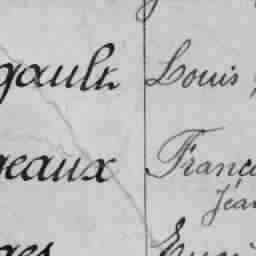 gault Louis
geaux Franc
Jean
ges Eugè